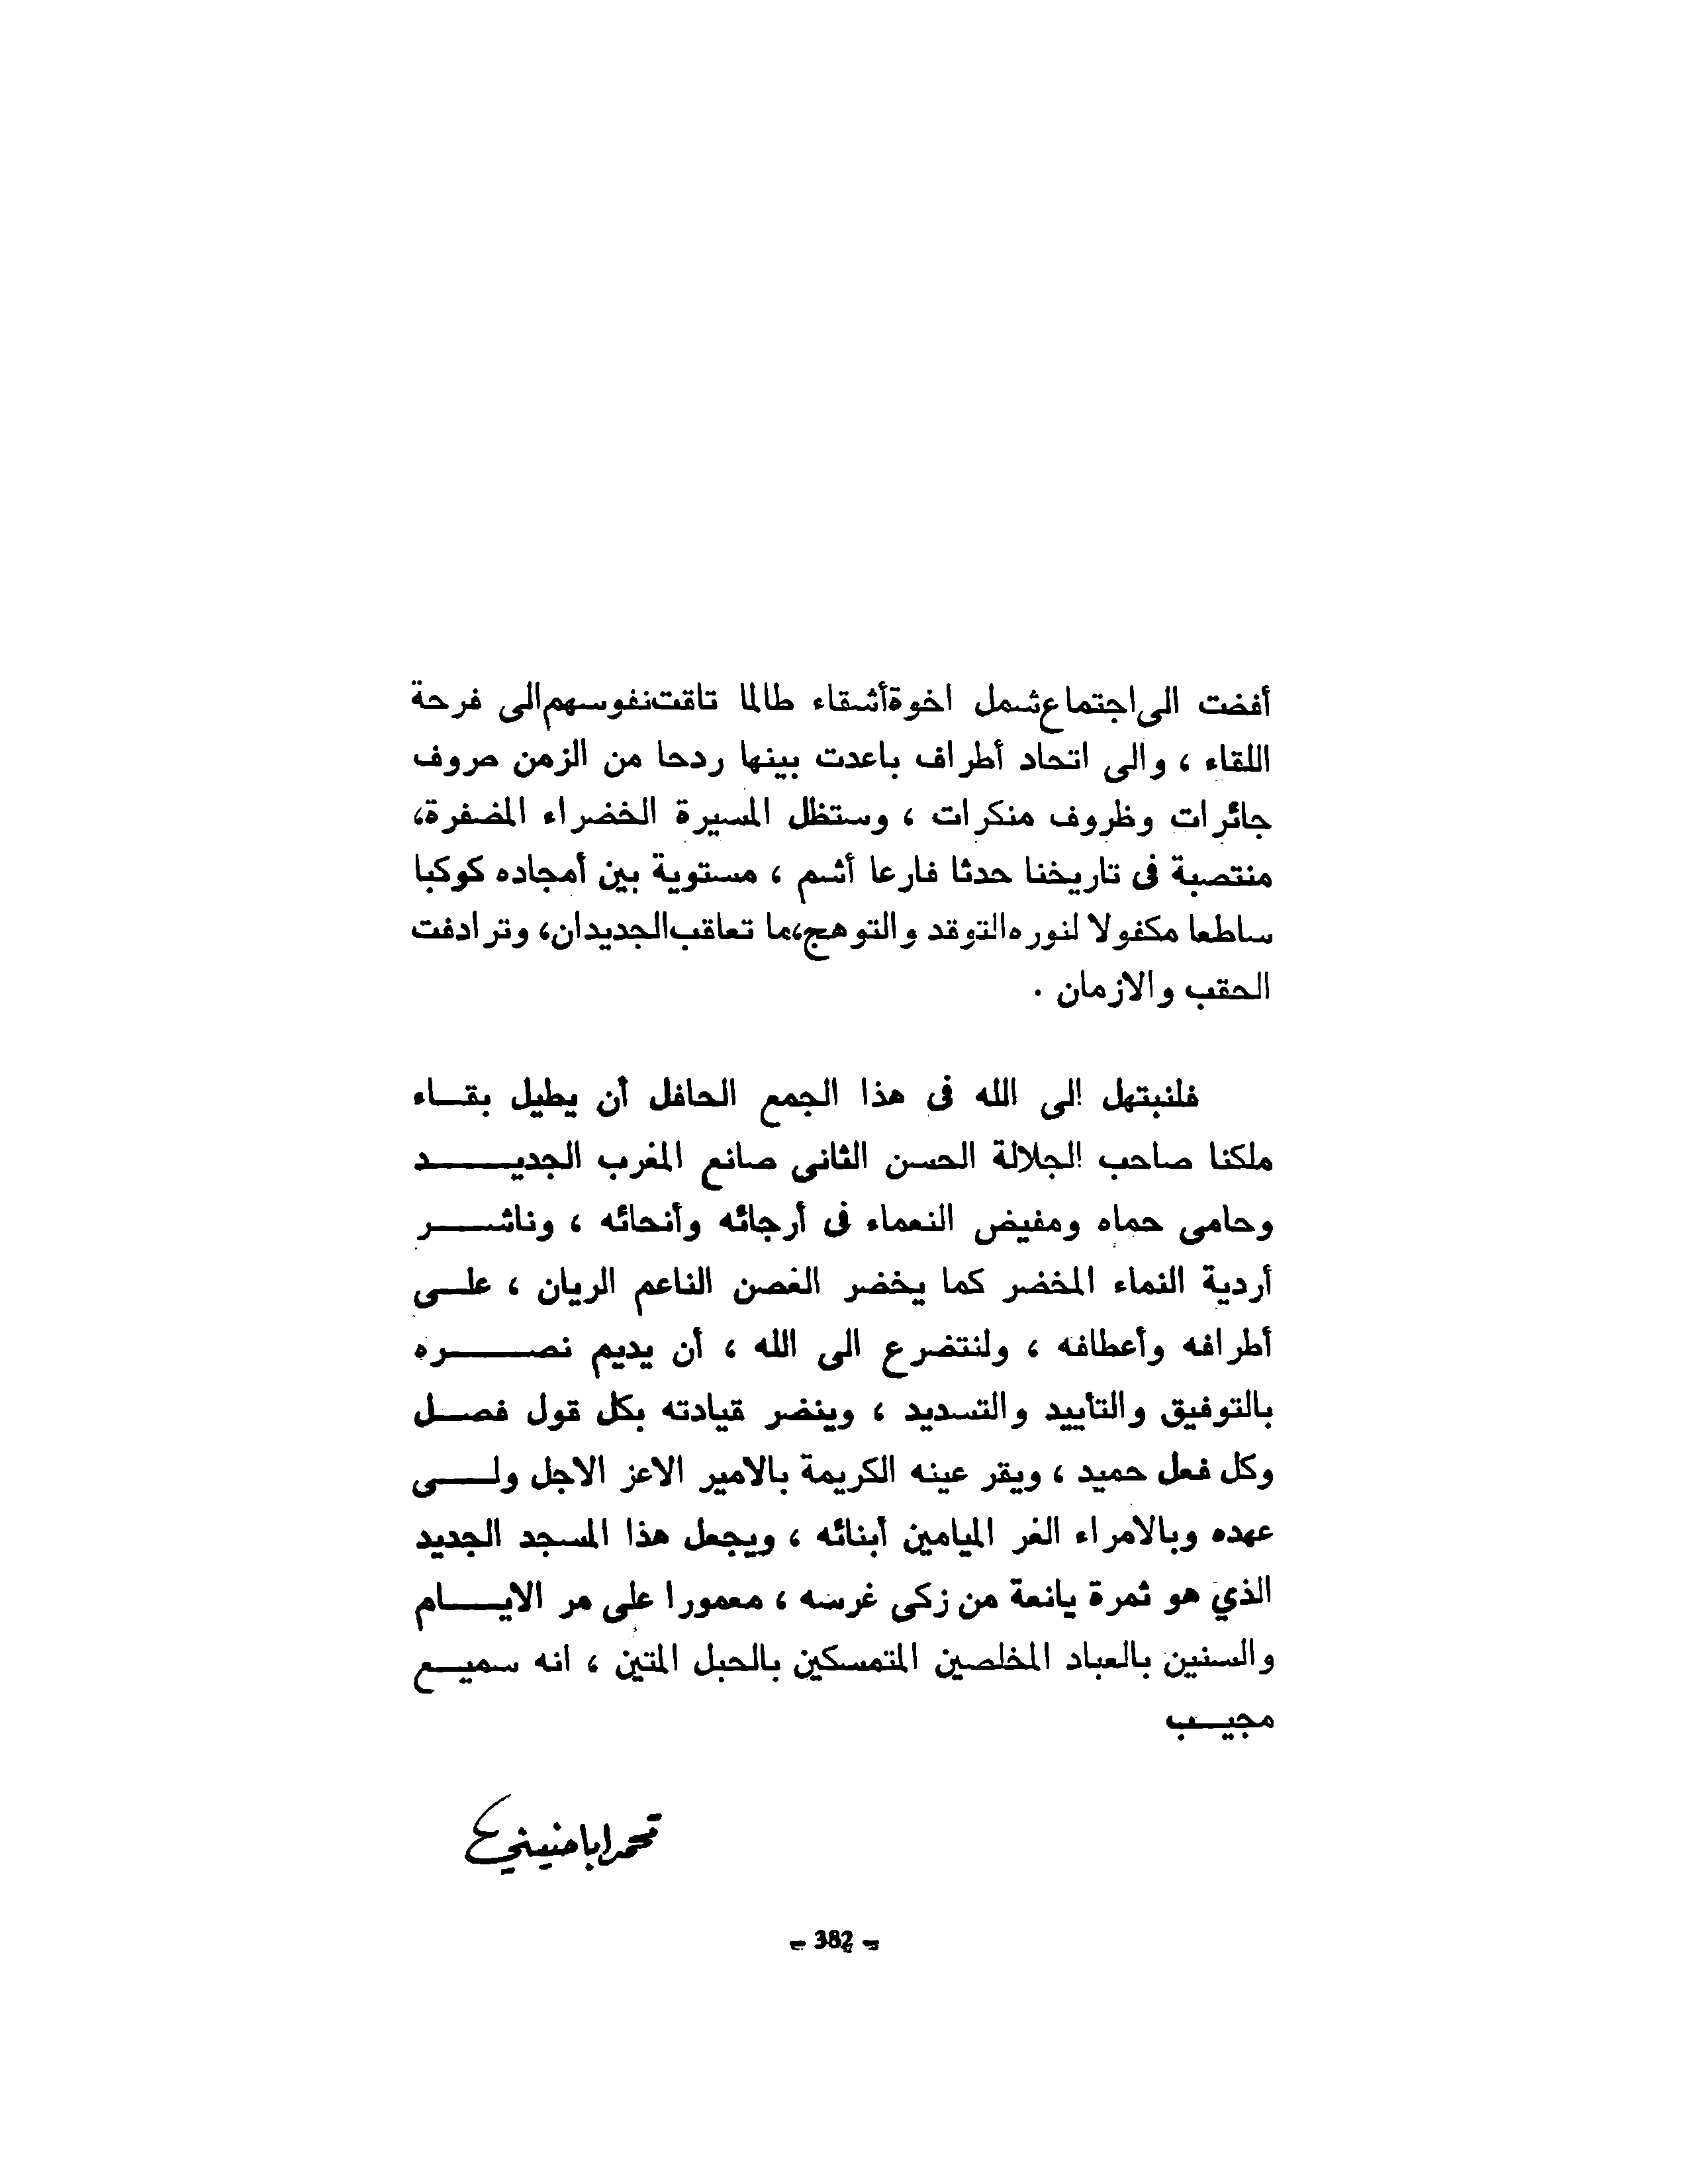 أفضت الى اجتماع شمل اخوة أشقاء طالما تاقت نفوسهم الى فرحة
اللقاء ، والى اتحاد أطراف باعدت بينها ردحا من الزمن صروف
جائرات وظروف منكرات ، وستظل المسيرة الخضراء المضفرة،
منتصبة فى تاريخنا حدثا فارعا أشم ، مستوية بين أمجاده كوكبا
ساطعا مكفولا لنوره التوقد والتوهج،ما تعاقب الجديدان، وترادفت
الحقب والازمان .
فلنبتهل الى الله فى هذا الجمع الحافل أن يطيل بقاء
ملكنا صاحب الجلالة الحسن الثانى صانع المغرب الجديد
وحامى حماه ومفيض النعماء فى أرجائه وأنحائه ، وناشر
أردية النماء المخضر كما يخضر الغصن الناعم الريان ، على
أطرافه وأعطافه ، ولنتضرع الى الله ، أن يديم نصره
بالتوفيق والتأييد والتسديد ، وينضر قيادته بكل قول فصل
وكل فعل حميد ، ويقر عينه الكريمة بالامير الاعز الاجل ولى
عهده وبالامراء الغر الميامين أبنائه ، ويجعل هذا المسجد الجديد
الذي هو ثمرة يانعة من زكى غرسه ، معمورا على مر الايام
والسنين بالعباد المخلصين المتمسكين بالحبل المتين ، انه سميع
مجيب
محمد اباحنيني
- 382 -